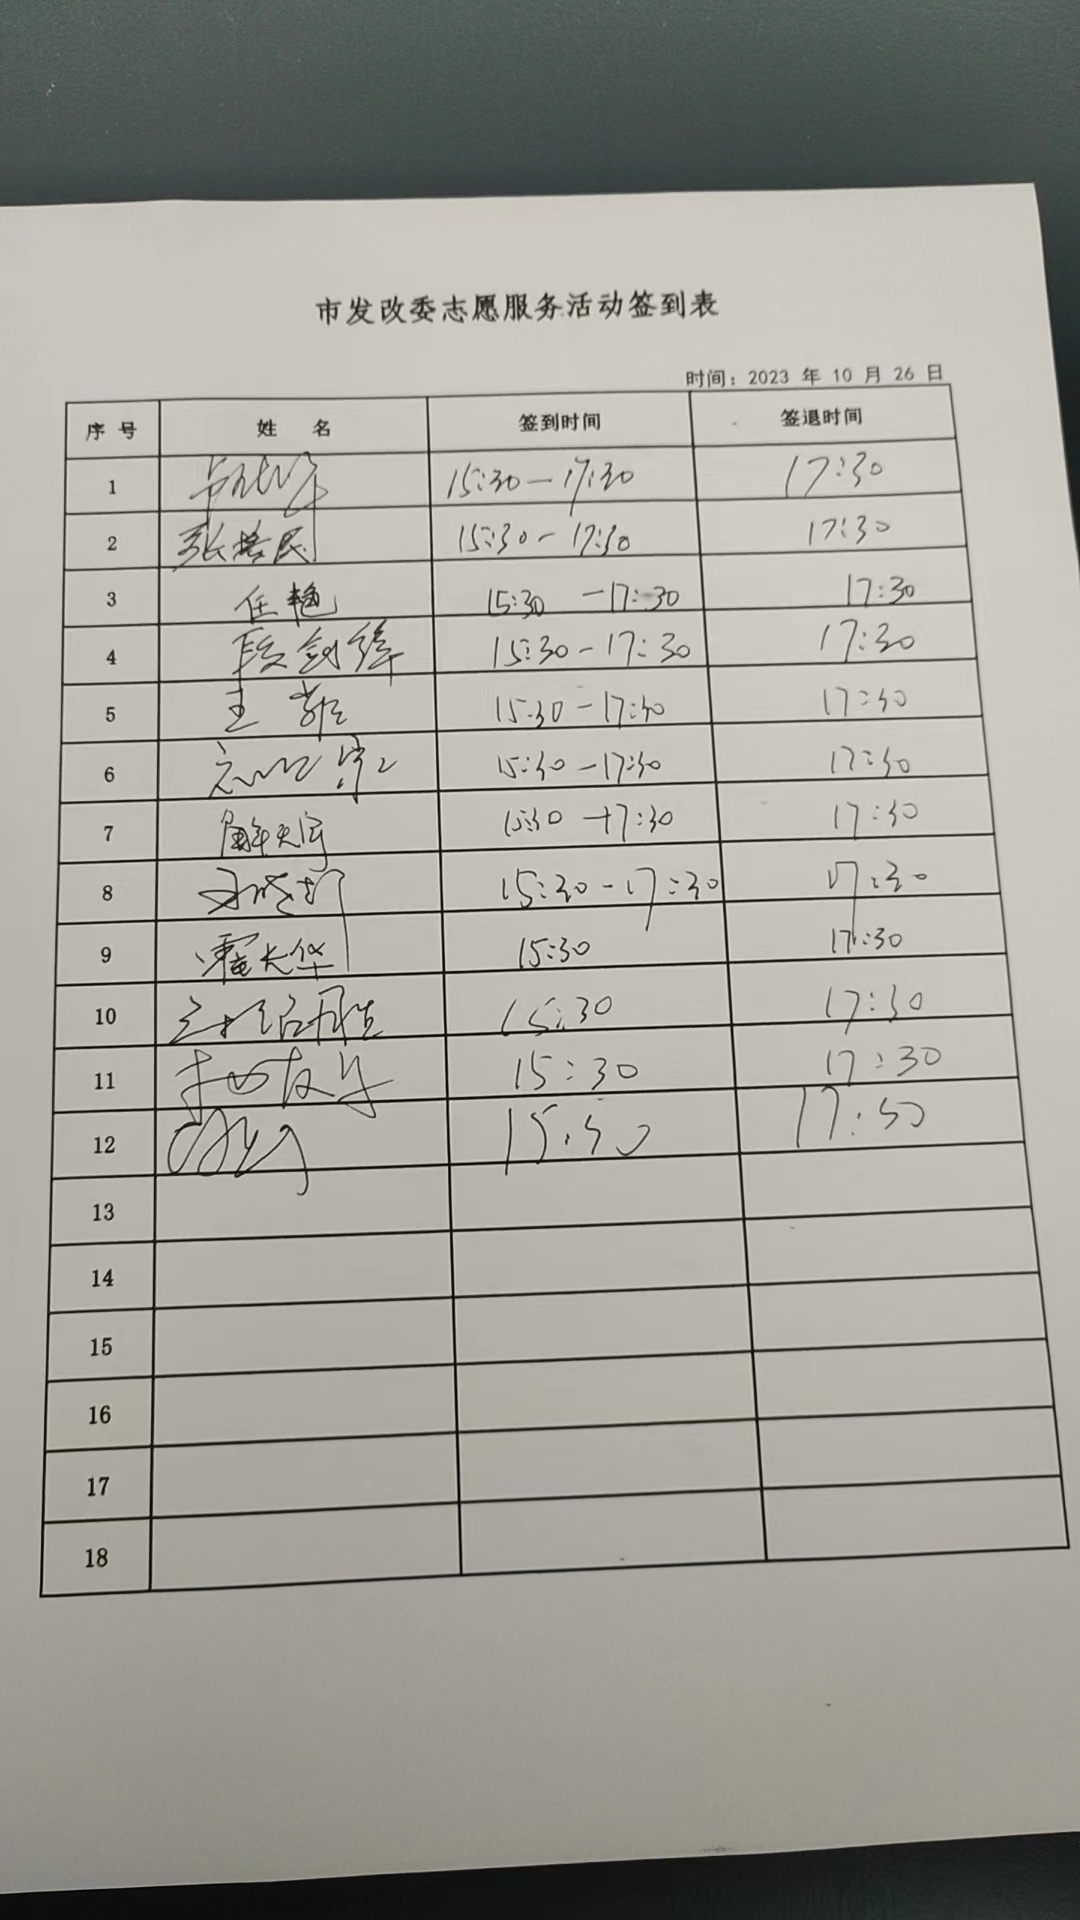 市发改委志愿服务活动签到表
时间：2023 年 10 月 26 日
序号 姓 名 签到时间 签退时间
1 15:30—17:30 17:30
2 张 民 15:30-17:30 17:30
3 任艳 15:30 -17:30 17:30
4 段剑锋 15:30-17:30 17:30
5 王 15:30-17:30 17:30
6 15:30-17:30 17:30
7 解天宇 15:30 -17:30 17:30
8 15:30-17:30 17:30
9 霍大华 15:30 17:30
10 15:30 17:30
11 15:30 17:30
12 15:30 17:30
13
14
15
16
17
18